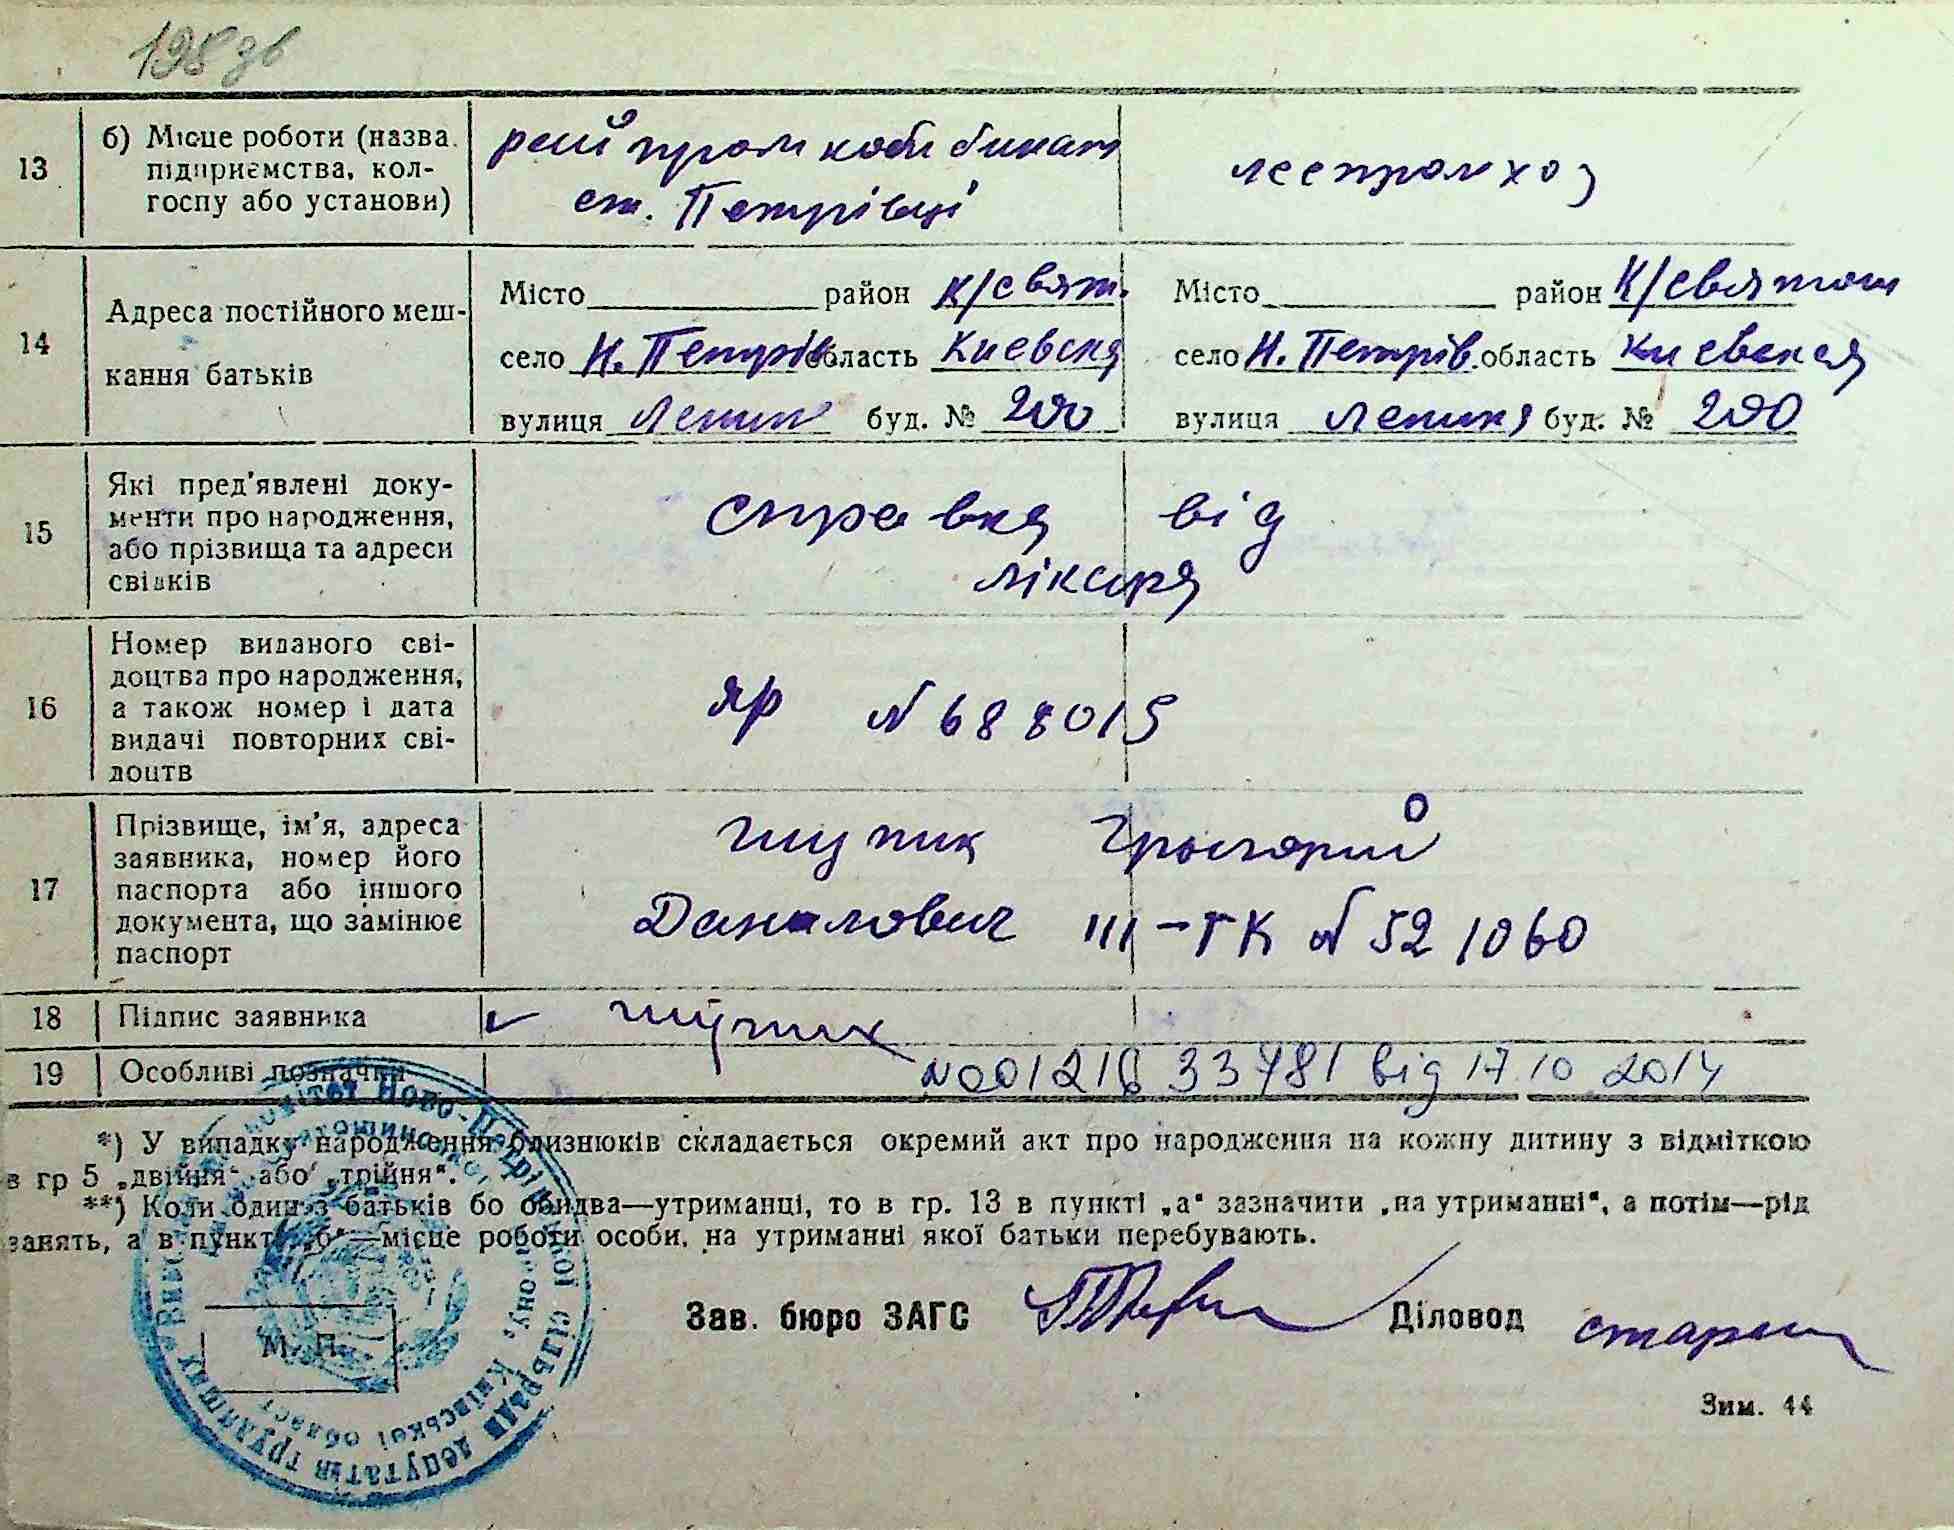 198 зв
13 б) Місце роботи (назва підприємства, колгоспу або установи)
рай пром комбинат
ст. Петрівці
леспромхоз
14 Адреса постійного мешкання батьків
Місто район К/Свят.
село Н. Петрів. область Киевская
вулиця Ленина буд. № 200
Місто район К/Святош
село Н. Петрів. область Киевская
вулиця Леніна буд. № 200
15 Які пред'явлені документи про народження, або прізвища та адреси свідків
справка від
лікаря
16 Номер виданого свідоцтва про народження, а також номер і дата видачі повторних свідоцтв
ЯР N 688015
17 Прізвище, ім'я, адреса заявника, номер його паспорта або іншого документа, що замінює паспорт
Грыгорий
Данилович III-ГК N 521060
18 Підпис заявника
19 Особливі позначки
N 00121633481 від 17.10.2014
*) У випадку народження близнюків складається окремий акт про народження на кожну дитину з відміткою
в гр 5 „двійня“ або „трійня“.
**) Коли один з батьків бо обидва—утриманці, то в гр. 13 в пункті „а“ зазначити „на утриманні“, а потім—рід
занять, а в пункті „б“—місце роботи особи, на утриманні якої батьки перебувають.
Зав. бюро ЗАГС Діловод
М. П.
Зим. 44